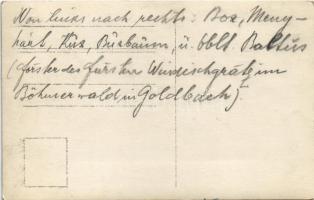 Von links nach rechts: Boz, Meny-
hárt, Kus, Büxbaum, u. Obllt. Baltus
(förster des fürsten Windischgrätz im
Böhmerwald in Goldbach).